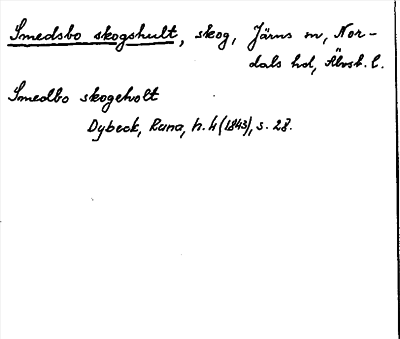 Smedsbo skogshult, skog, Järns sn, Nor-
dals hd, Älvsb. l.
Smedbo skogeholt
Dybeck, Runa, h. 4 (1843), s. 28.